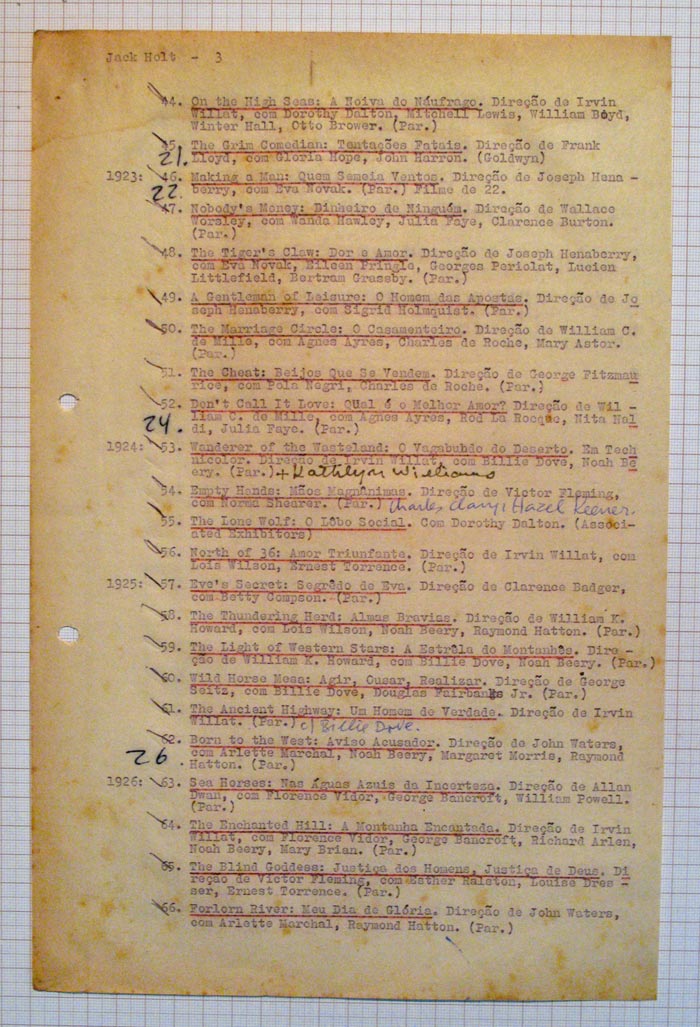 Jack Holt - 3
44. On the High Seas: A Noiva do Náufrago. Direção de Irvin
Willat, com Dorothy Dalton, Mitchell Lewis, William Boyd,
Winter Hall, Otto Brower. (Par.)
45. The Grim Comedian: Tentações Fatais. Direção de Frank
21. Lloyd, com Gloria Hope, John Harron. (Goldwyn)
1923: 46. Making a Man: Quem Semeia Ventos. Direção de Joseph Hena -
22. berry, com Eva Novak. (Par.) Filme de 22.
47. Nobody's Money: Dinheiro de Ninguém. Direção de Wallace
Worsley, com Wanda Hawley, Julia Faye, Clarence Burton.
(Par.)
48. The Tiger's Claw: Dor e Amor. Direção de Joseph Henaberry,
com Eva Novak, Eileen Pringle, Georges Periolat, Lucien
Littlefield, Bertram Grassby. (Par.)
49. A Gentleman of Leisure: O Homem das Apostas. Direção de Jo
seph Henaberry, com Sigrid Holmquist. (Par.)
50. The Marriage Circle: O Casamenteiro. Direção de William C.
de Mille, com Agnes Ayres, Charles de Roche, Mary Astor.
(Par.)
51. The Cheat: Beijos Que Se Vendem. Direção de George Fitzmau
rice, com Pola Negri, Charles de Roche. (Par.)
52. Don't Call It Love: QUal é o Melhor Amor? Direção de Wil -
24. liam C. de Mille, com Agnes Ayres, Rod La Rocque, Nita Nal
di, Julia Faye. (Par.)
1924: 53. Wanderer of the Wasteland: O Vagabuhdo do Deserto. Em Tech
nicolor. Direção de Irvin Willat, com Billie Dove, Noah Be
ery. (Par.) + Kathlyn Williams
54. Empty Hands: Mãos Magnânimas. Direção de Victor Fleming,
com Norma Shearer. (Par.) Charles Clary, Hazel Keener.
55. The Lone Wolf: O Lôbo Social. Com Dorothy Dalton. (Associ-
ated Exhibitors)
56. North of 36: Amor Triunfante. Direção de Irvin Willat, com
Lois Wilson, Ernest Torrence. (Par.)
1925: 57. Eve's Secret: Segrêdo de Eva. Direção de Clarence Badger,
com Betty Compson. (Par.)
58. The Thundering Herd: Almas Bravias. Direção de William K.
Howard, com Lois Wilson, Noah Beery, Raymond Hatton. (Par.)
59. The Light of Western Stars: A Estrêla do Montanhês. Dire -
ção de William K. Howard, com Billie Dove, Noah Beery. (Par.)
60. Wild Horse Mesa: Agir, Ousar, Realizar. Direção de George
Seitz, com Billie Dove, Douglas Fairbanks Jr. (Par.)
61. The Ancient Highway: Um Homem de Verdade. Direção de Irvin
Willat. (Par.) c/ Billie Dove.
62. Born to the West: Aviso Acusador. Direção de John Waters,
26. com Arlette Marchal, Noah Beery, Margaret Morris, Raymond
Hatton. (Par.)
1926: 63. Sea Horses: Nas Águas Azuis da Incerteza. Direção de Allan
Dwan, com Florence Vidor, George Bancroft, William Powell.
(Par.)
64. The Enchanted Hill: A Montanha Encantada. Direção de Irvin
Willat, com Florence Vidor, George Bancroft, Richard Arlen,
Noah Beery, Mary Brian. (Par.)
65. The Blind Goddess: Justiça dos Homens, Justiça de Deus. Di
reção de Victor Fleming, com Esther Ralston, Louise Dres
ser, Ernest Torrence. (Par.)
66. Forlorn River: Meu Dia de Glória. Direção de John Waters,
com Arlette Marchal, Raymond Hatton. (Par.)